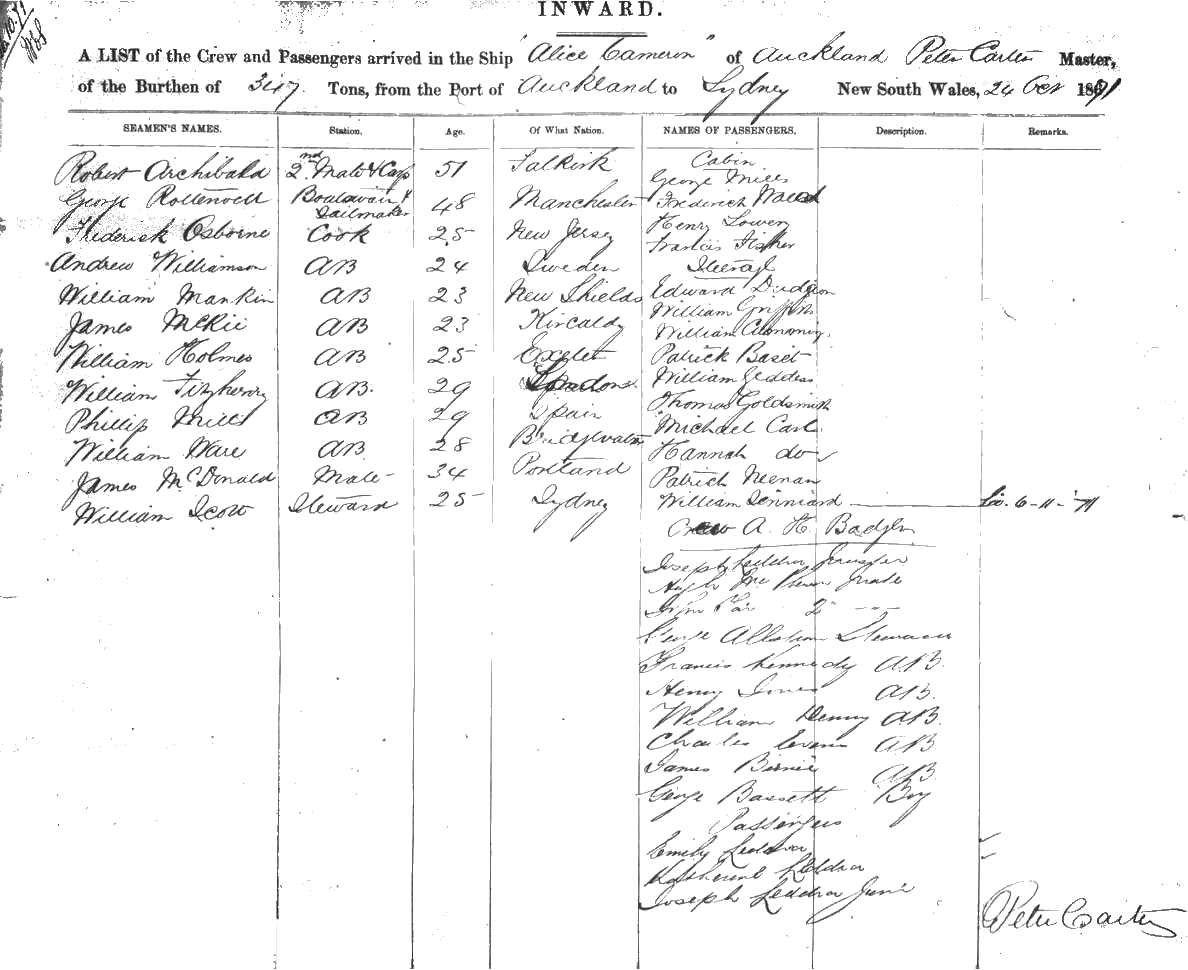 INWARD.
A LIST of the Crew and Passengers arrived in the Ship "Alice Cameron" of Auckland Peter Carter Master,
of the Burthen of 347 Tons, from the Port of Auckland to Sydney New South Wales, 24 Oct 1871
SEAMEN'S NAMES. Station. Age. Of What Nation. NAMES OF PASSENGERS. Description. Remarks.
Robert Archibald 2nd Mate & Carp 51 Falkirk
George Rottenvell Boatswain & Sailmaker 48 Manchester
Frederick Osborne Cook 25 New Jersey
Andrew Williamson AB 24 Sweden
William Mankin AB 23 New Shields
James McKie AB 23 Kircaldy
William Holmes AB 25 Exeter
William Fitzhenry AB. 29 London
Phillip Mills AB 29 Spain
William Ware AB 28 Bridgwater
James McDonald Mate 34 Portland
William Scott Steward 25 Sydney
Cabin
George Mills
Frederick
Henry Lowen
Francis Fisher
Steerage
Edward Dudgeon
William Griffiths
William
Patrick Baset
William Geddess
Thomas Goldsmith
Michael Carl
Hannah do
Patrick Neenan
William Denniard 6-11-71
Crew A. H. Badger
Joseph Leddra
Hugh Mc mate
2
George Allstun Steward
Francis Kennedy AB.
Henry Jones AB.
William Denny AB.
Charles Evens AB
James Birnie AB
George Bassett Boy
Passengers
Emily Leddra
Katherine Leddra
Joseph Leddra Junr
Peter Carter